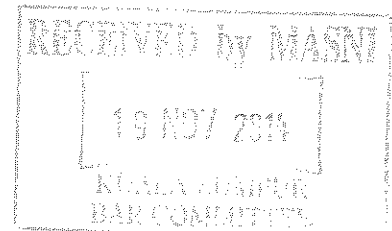 RECEIVED by MASNI
19 NOV 2014
KUALA LUMPUR
BAR COMMITTEE